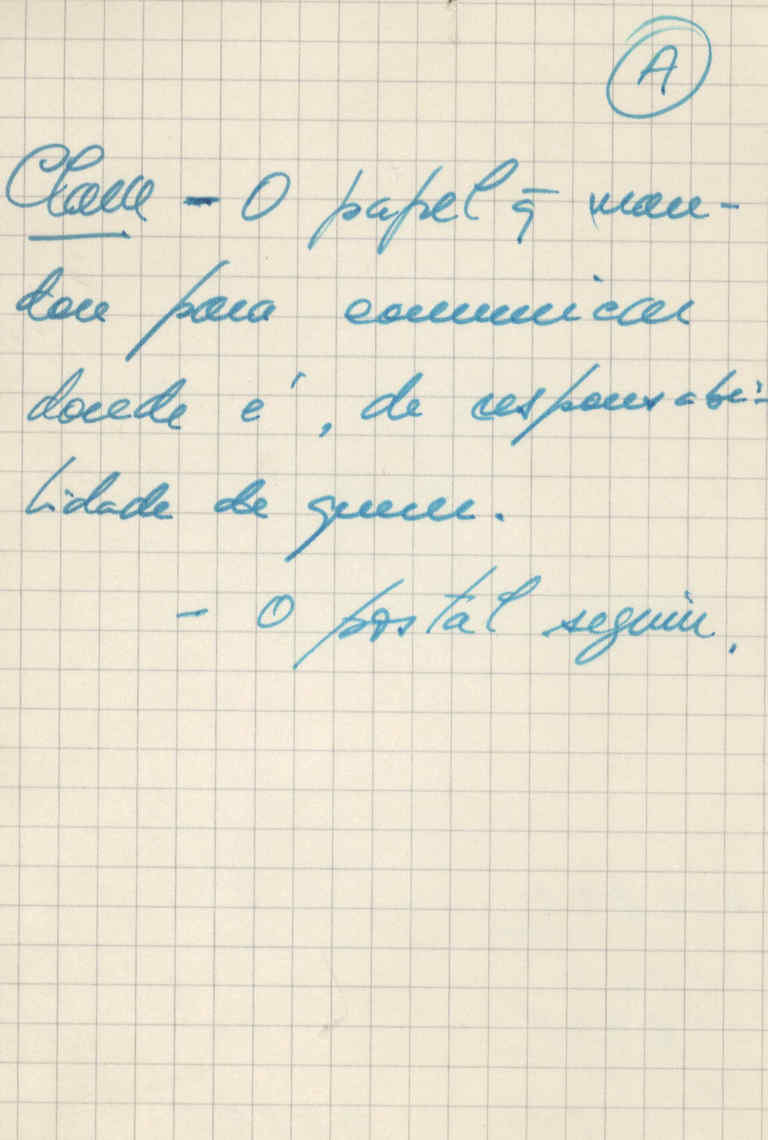 A
– O papel q̄ man-
dou para comunicar
donde é, de responsabi-
lidade de quem.
– O postal seguiu.